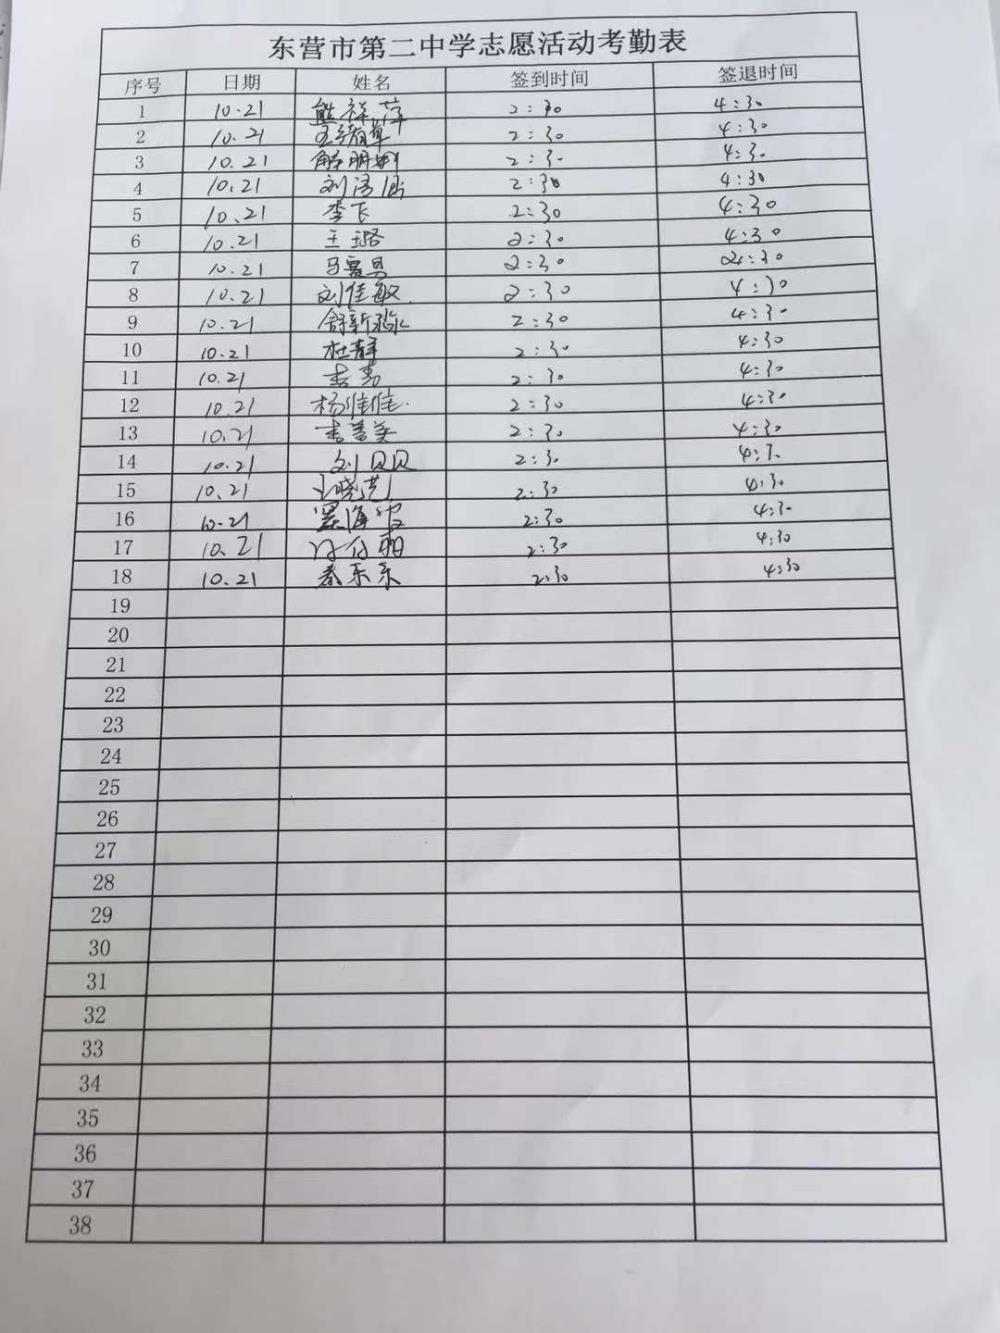 东营市第二中学志愿活动考勤表
序号 日期 姓名 签到时间 签退时间
1 10.21 熊祥萍 2:30 4:30
2 10.21 2:30 4:30
3 10.21 解朋娜 2:30 4:30
4 10.21 刘涛 2:30 4:30
5 10.21 李飞 2:30 4:30
6 10.21 王璐 2:30 4:30
7 10.21 2:30 4:30
8 10.21 刘佳敏 2:30 4:30
9 10.21 舒新 2:30 4:30
10 10.21 杜静 2:30 4:30
11 10.21 2:30 4:30
12 10.21 杨佳佳 2:30 4:30
13 10.21 2:30 4:30
14 10.21 刘贝贝 2:30 4:30
15 10.21 2:30 4:30
16 10.21 2:30 4:30
17 10.21 2:30 4:30
18 10.21 秦乐乐 2:30 4:30
19
20
21
22
23
24
25
26
27
28
29
30
31
32
33
34
35
36
37
38